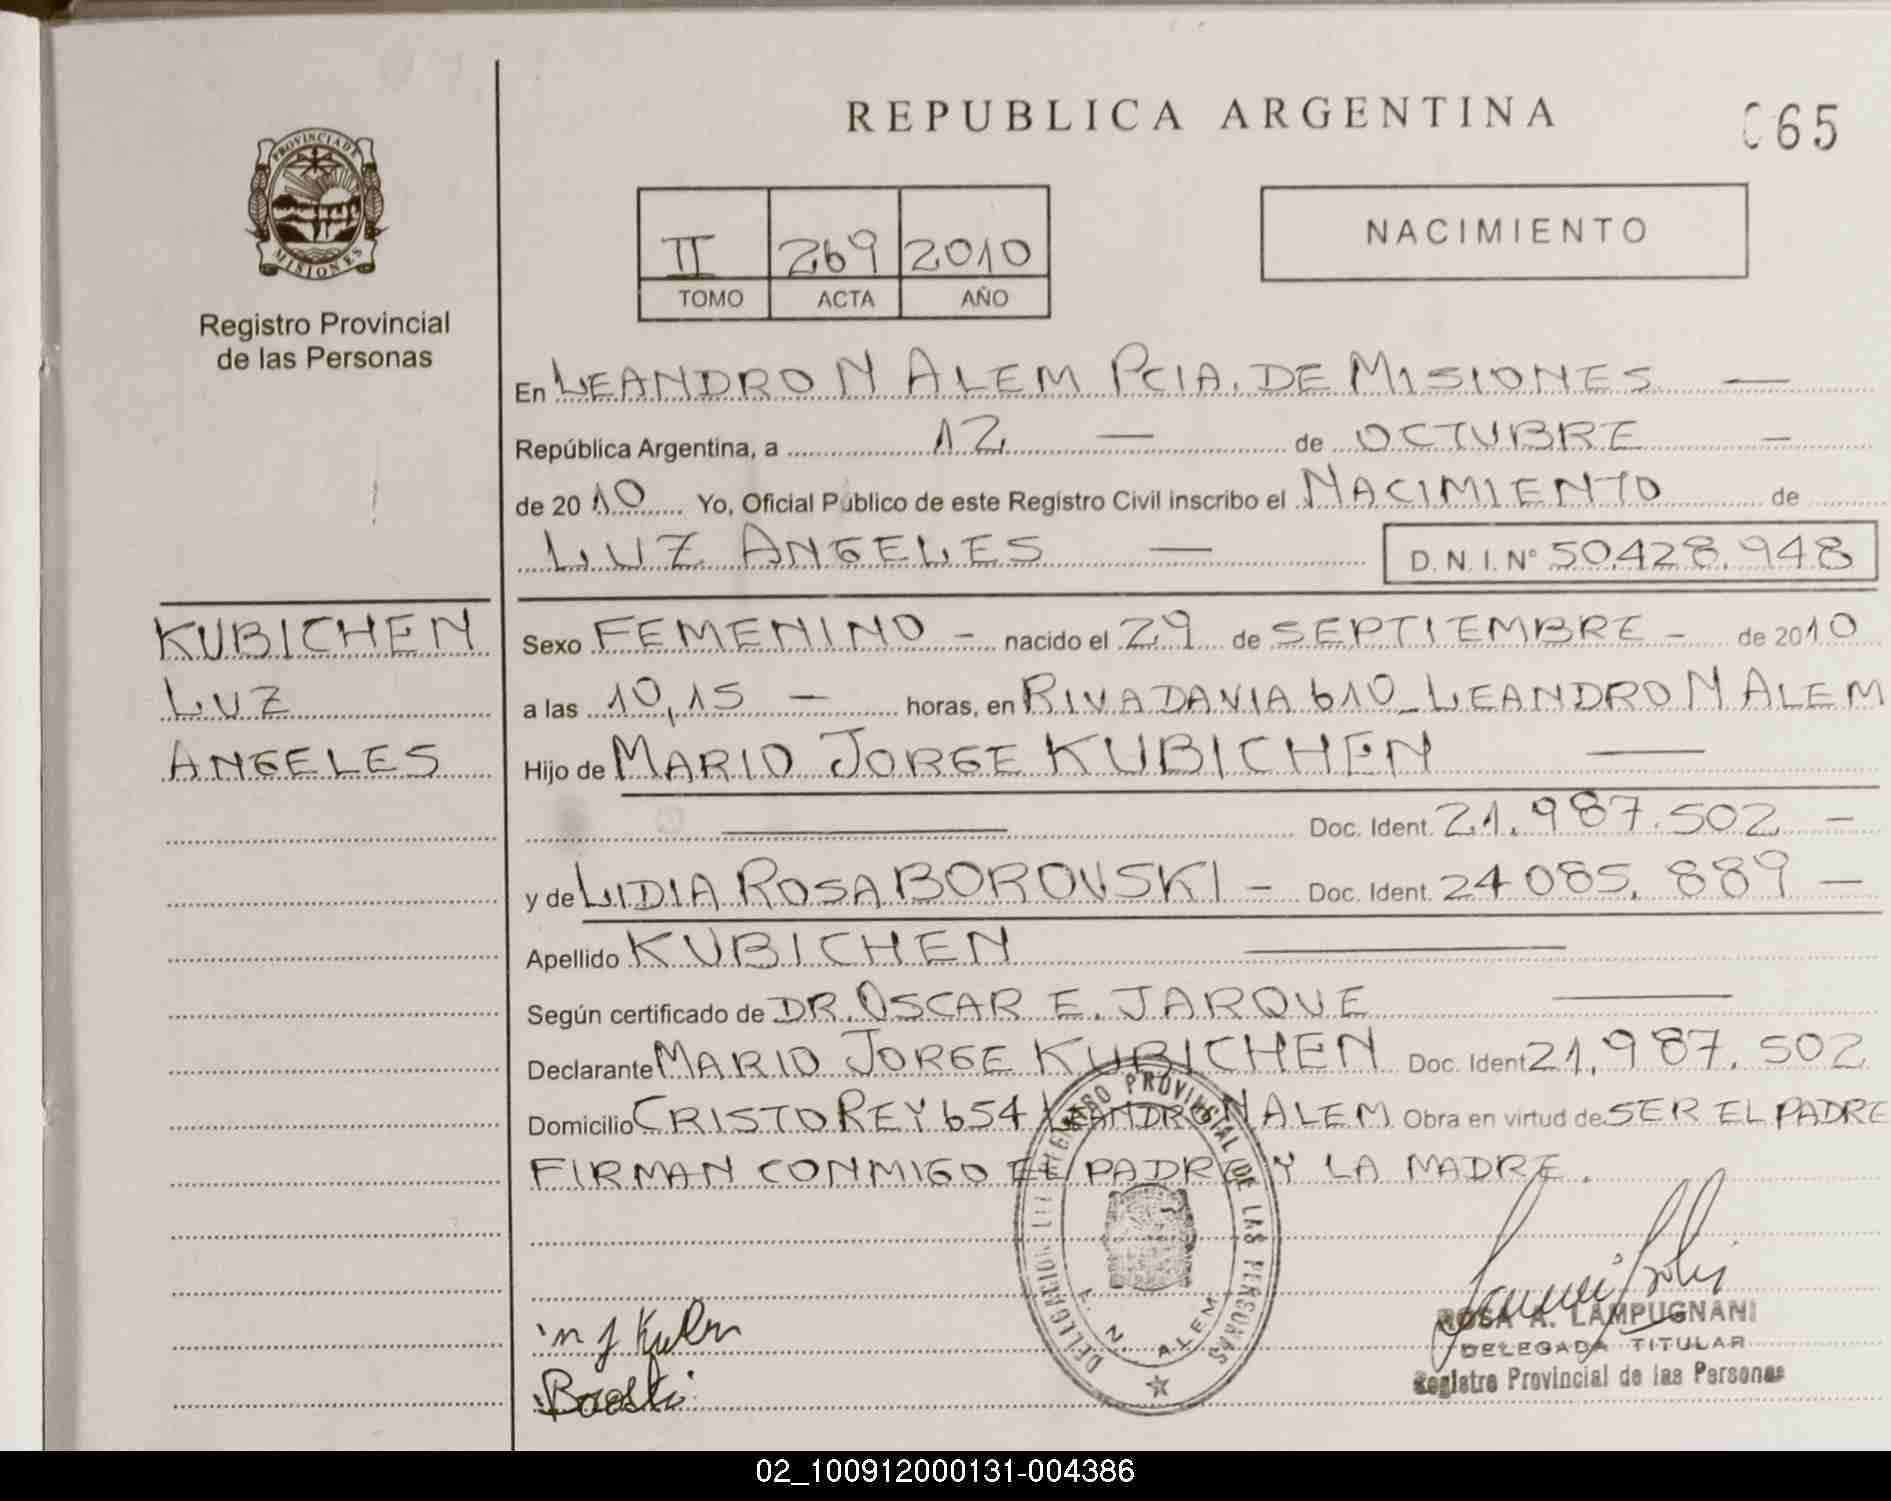 REPUBLICA ARGENTINA
065
PROVINCIA DE MISIONES
Registro Provincial
de las Personas
II 269 2010
TOMO ACTA AÑO
NACIMIENTO
En LEANDRO N ALEM PCIA. DE MISIONES —
República Argentina, a 12 — de OCTUBRE —
de 2010 Yo, Oficial Público de este Registro Civil inscribo el NACIMIENTO de
LUZ ANGELES — D.N.I. Nº 50.428.948
KUBICHEN
LUZ
ANGELES
Sexo FEMENINO - nacido el 29 de SEPTIEMBRE - de 2010
a las 10,15 — horas, en RIVADAVIA 610_LEANDRO N ALEM
Hijo de MARIO JORGE KUBICHEN —
— Doc. Ident. 21.987.502 —
y de LIDIA ROSA BOROVSKI - Doc. Ident. 24 085.889 —
Apellido KUBICHEN —
Según certificado de DR. OSCAR E. JARQUE —
Declarante MARIO JORGE KUBICHEN Doc. Ident 21.987.502
Domicilio CRISTO REY 654 LEANDRO N ALEM Obra en virtud de SER EL PADRE
FIRMAN CONMIGO EL PADRE Y LA MADRE.
PROVINCIAL DE LAS PERSONAS
DELEGACION
L. N. ALEM
ROSA A. LAMPUGNANI
DELEGADA TITULAR
Registro Provincial de las Personas
02_100912000131-004386